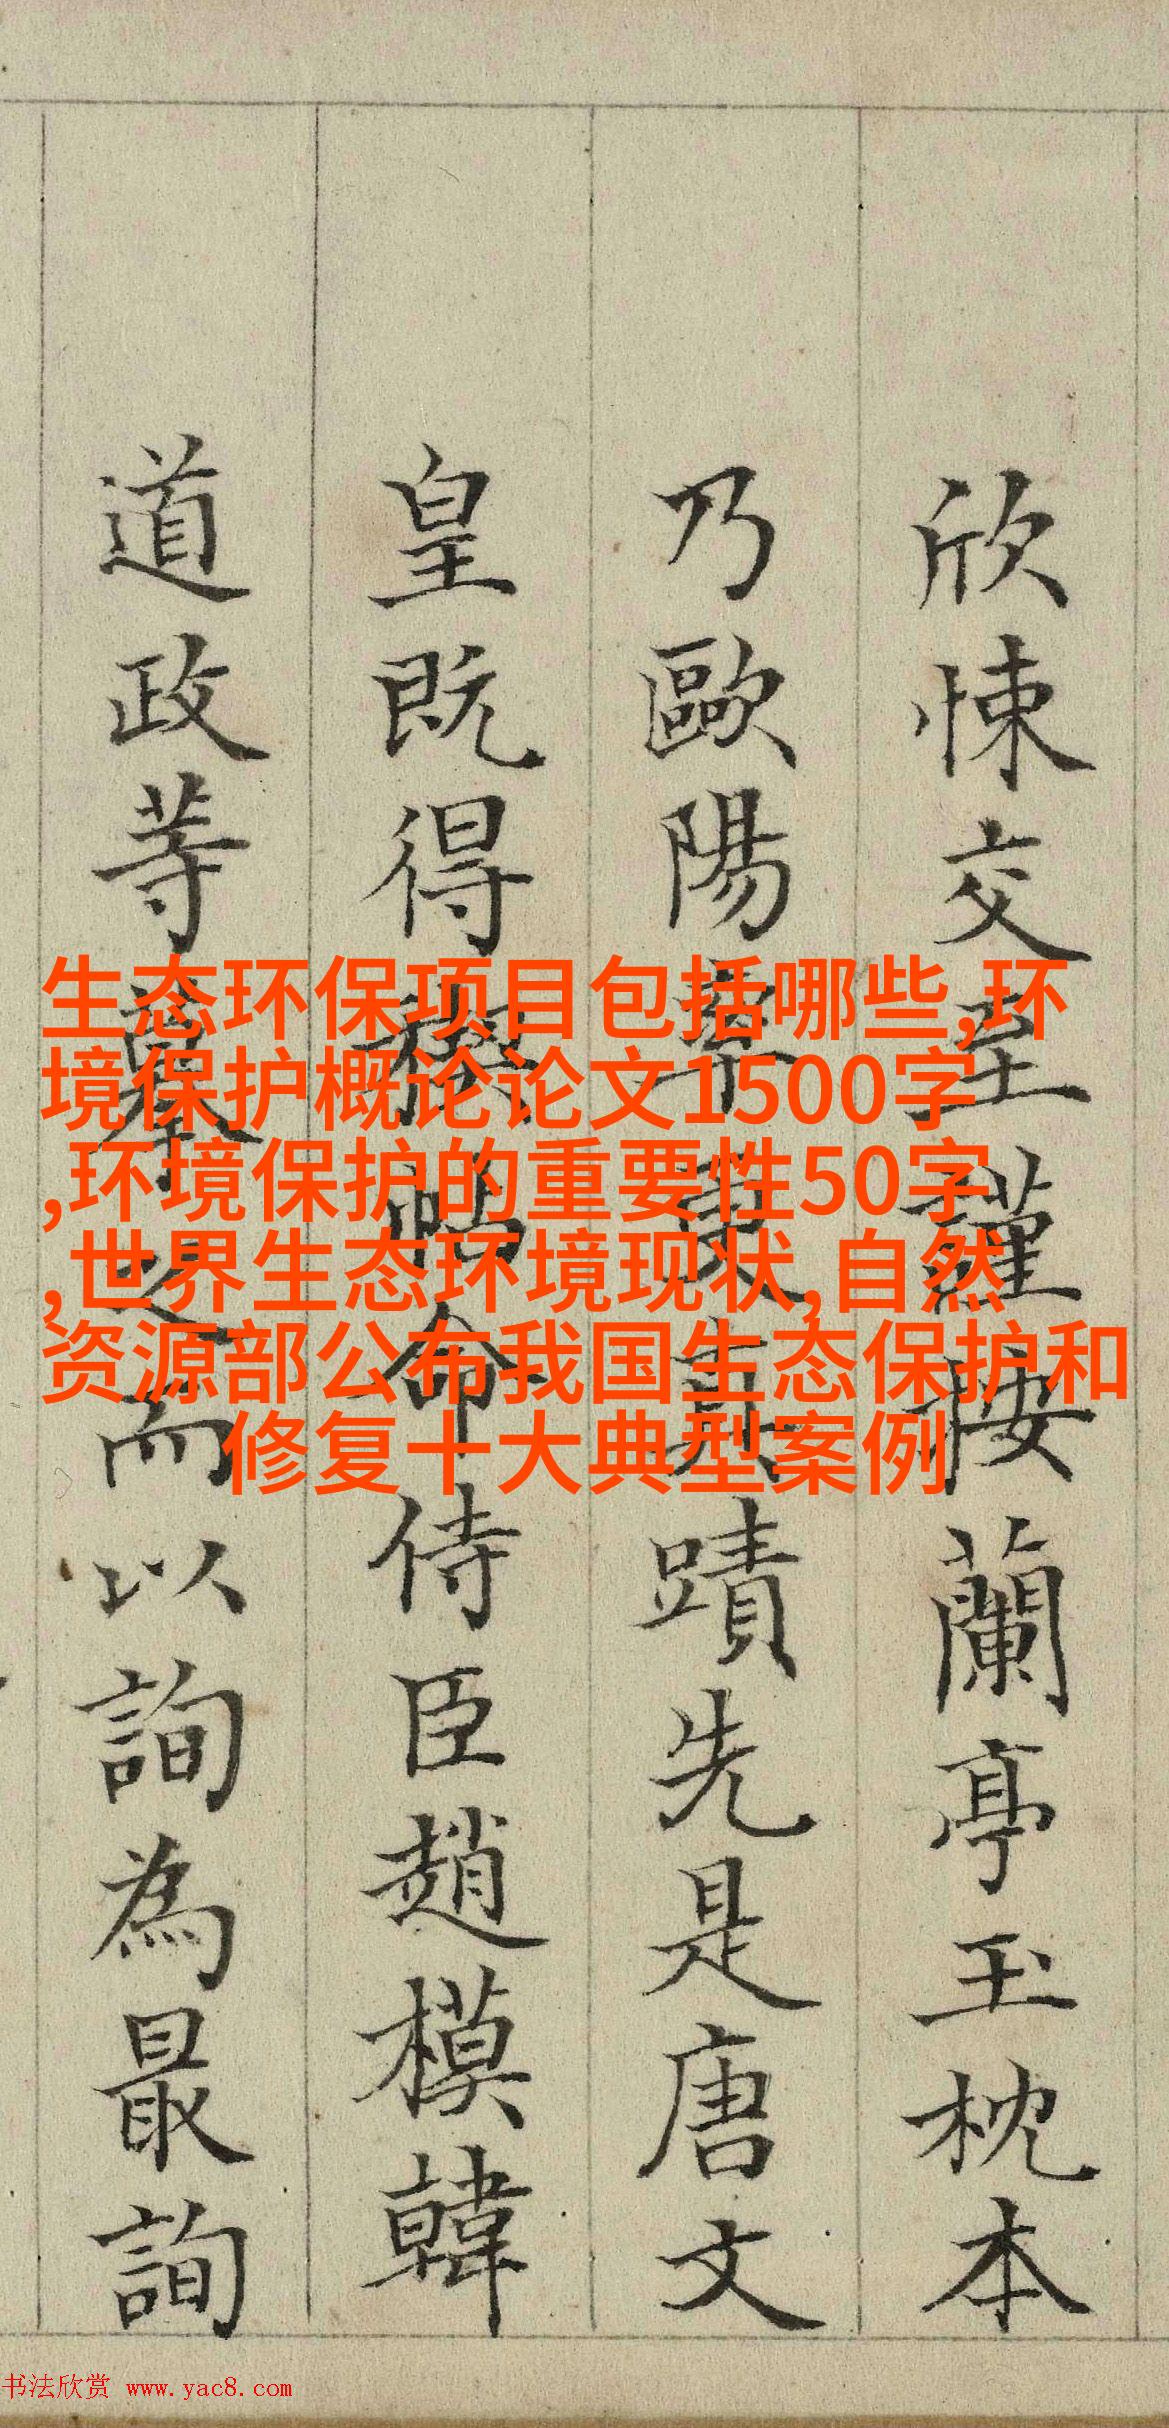 欣悚交至謹按蘭亭玉枕本
乃歐陽率更真蹟先是唐文
皇既得禊帖命侍臣趙模韓
道政等摹之而以詢為最詢
生态环保项目包括哪些,环
境保护概论论文1500字
,环境保护的重要性50字
,世界生态环境现状,自然
资源部公布我国生态保护和
修复十大典型案例
书法欣赏 www.yac8.com